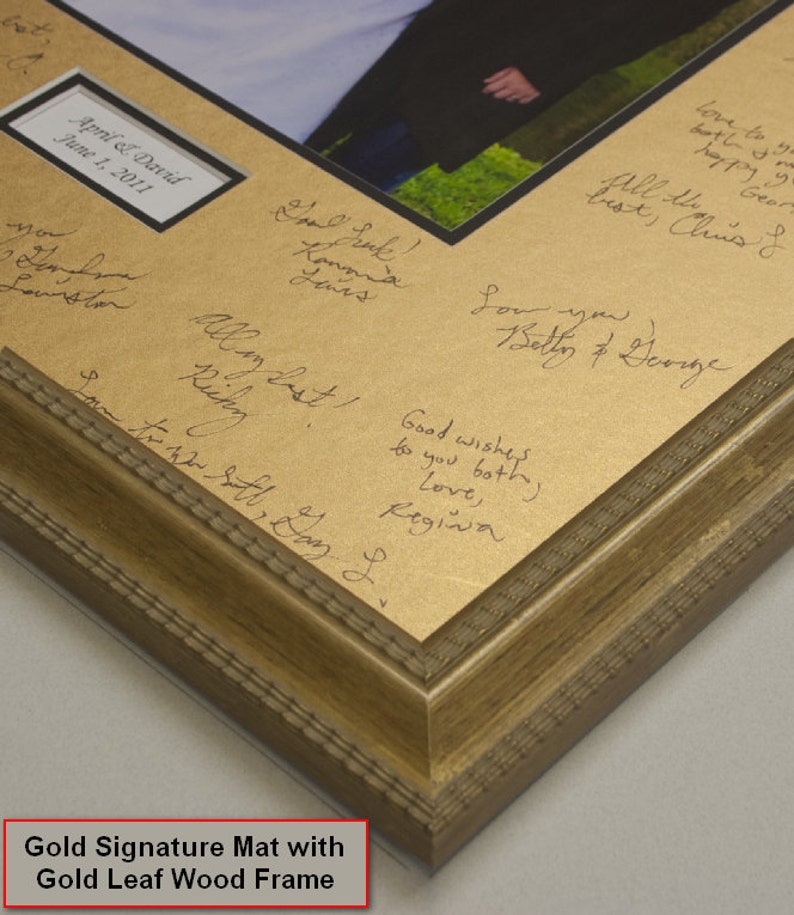 best,
April & David
June 1, 2011
you
Grandma
Lewiston
Good Luck!
Lewis
All my best!
Ricky
Love to you
both &
happy
All the
best, Chris L
Love you,
Betty & George
Good wishes
to you both,
Love,
Regina
Love to you both, Gary L.
Gold Signature Mat with
Gold Leaf Wood Frame